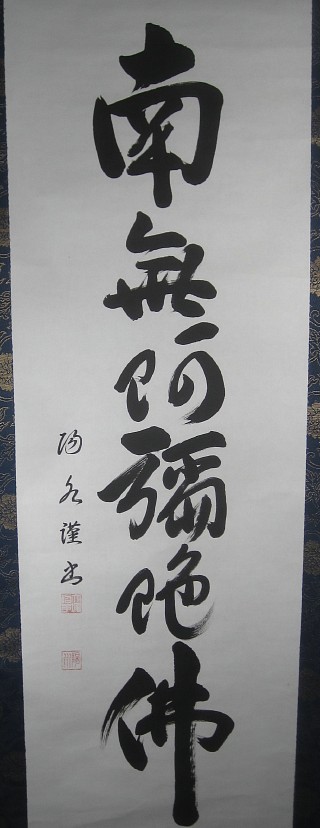 南無阿彌陀佛
陽谷謹書